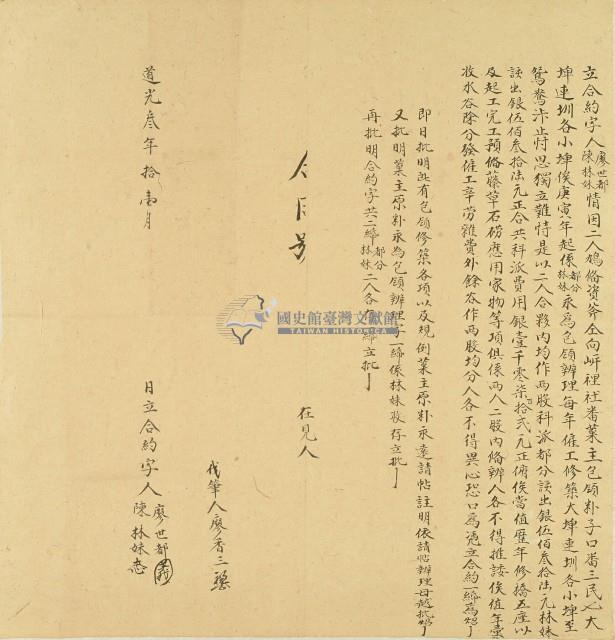 立合約字人廖世都陳林妹情因二人鳩俻資斧仝向岍裡社番業主包領朴子口番三民七大
埤連圳各小埤俟庚寅年起係都分林妹承為包領辦理每年僱工修築大埤連圳各小埤至
鴛鴦汴止恃思獨立難恃是以二人合夥內均作兩股科派都分該出銀伍佰叁拾陆元林妹
該出銀伍佰叁拾陆元正合共科派費用銀壹千零柒拾弍元正俻俟當值歷年修橋五座以
及起工完工預俻藤草石磅應用家物等項俱係両人二股內俻辦人各不得推諉俟值年
收水谷除分發僱工辛労雜費外餘谷作两股均分人各不得異心恐口為憑立合約一紙為炤
即日批明此有包領修築各項以及規例業主原朴永遠請帖註明依請帖辦理毋越批炤
又批明業主原朴永為包領辦理字一紙係林妹收存立批
再批明合約字共二紙都分林妹二人各紙立批
合同号
在見人
代筆人廖香三
道光叁年拾壹月
日立合約字人廖世都陳林妹
國史館臺灣文獻館
TAIWAN HISTORICA